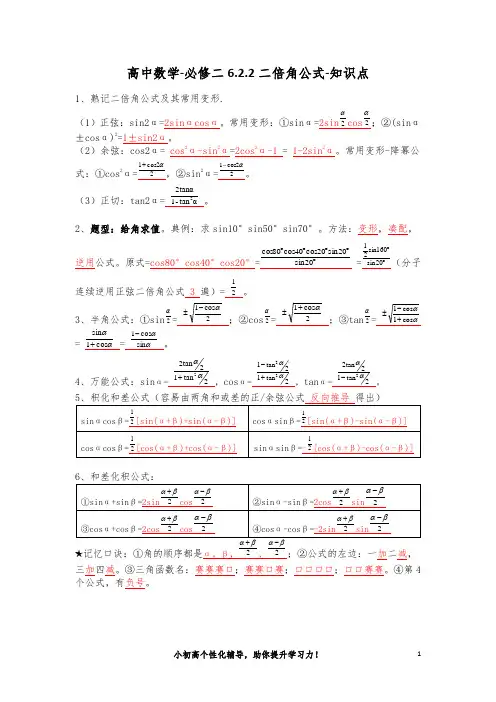 高中数学-必修二6.2.2二倍角公式-知识点
1、熟记二倍角公式及其常用变形.
（1）正弦：sin2α=2sinαcosα。常用变形：①sinα=2sin α/2 cos α/2；②(sinα
±cosα)²=1±sin2α。
（2）余弦：cos2α= cos²α-sin²α=2cos²α-1 = 1-2sin²α。常用变形-降幂公
式：①cos²α=(1+cos2α)/2，②sin²α=(1-cos2α)/2。
（3）正切：tan2α= 2tanα/(1-tan²α) 。
2、题型：给角求值。典例：求sin10°sin50°sin70°。方法：变形，凑配，
逆用公式。原式=cos80°cos40°cos20°=cos80°cos40°cos20°sin20°/sin20° =1/2 sin160°/sin20°（分子
连续逆用正弦二倍角公式 3 遍）= 1/2 。
3、半角公式：①sin α/2= ±√((1-cosα)/2) ；②cos α/2= ±√((1+cosα)/2) ；③tan α/2= ±√((1-cosα)/(1+cosα))
= sinα/(1+cosα) = (1-cosα)/sinα。
4、万能公式：sinα= 2tan α/2/(1+tan² α/2) ，cosα= (1-tan² α/2)/(1+tan² α/2) ，tanα= 2tan α/2/(1-tan² α/2) 。
5、积化和差公式（容易由两角和或差的正/余弦公式 反向推导 得出）
sinαcosβ=1/2[sin(α+β)+sin(α-β)] cosαsinβ=1/2[sin(α+β)-sin(α-β)]
cosαcosβ=1/2[cos(α+β)+cos(α-β)] sinαsinβ=-1/2[cos(α+β)-cos(α-β)]
6、和差化积公式：
①sinα+sinβ=2sin (α+β)/2 cos (α-β)/2 ②sinα-sinβ=2cos (α+β)/2 sin (α-β)/2
③cosα+cosβ=2cos (α+β)/2 cos (α-β)/2 ④cosα-cosβ=-2sin (α+β)/2 sin (α-β)/2
★记忆口诀：①角的顺序都是α，β，(α+β)/2，(α-β)/2；②公式的左边：一加二减，
三加四减。③三角函数名：赛赛赛口；赛赛口赛；口口口口；口口赛赛。④第4
个公式，有负号。
小初高个性化辅导，助你提升学习力！ 1